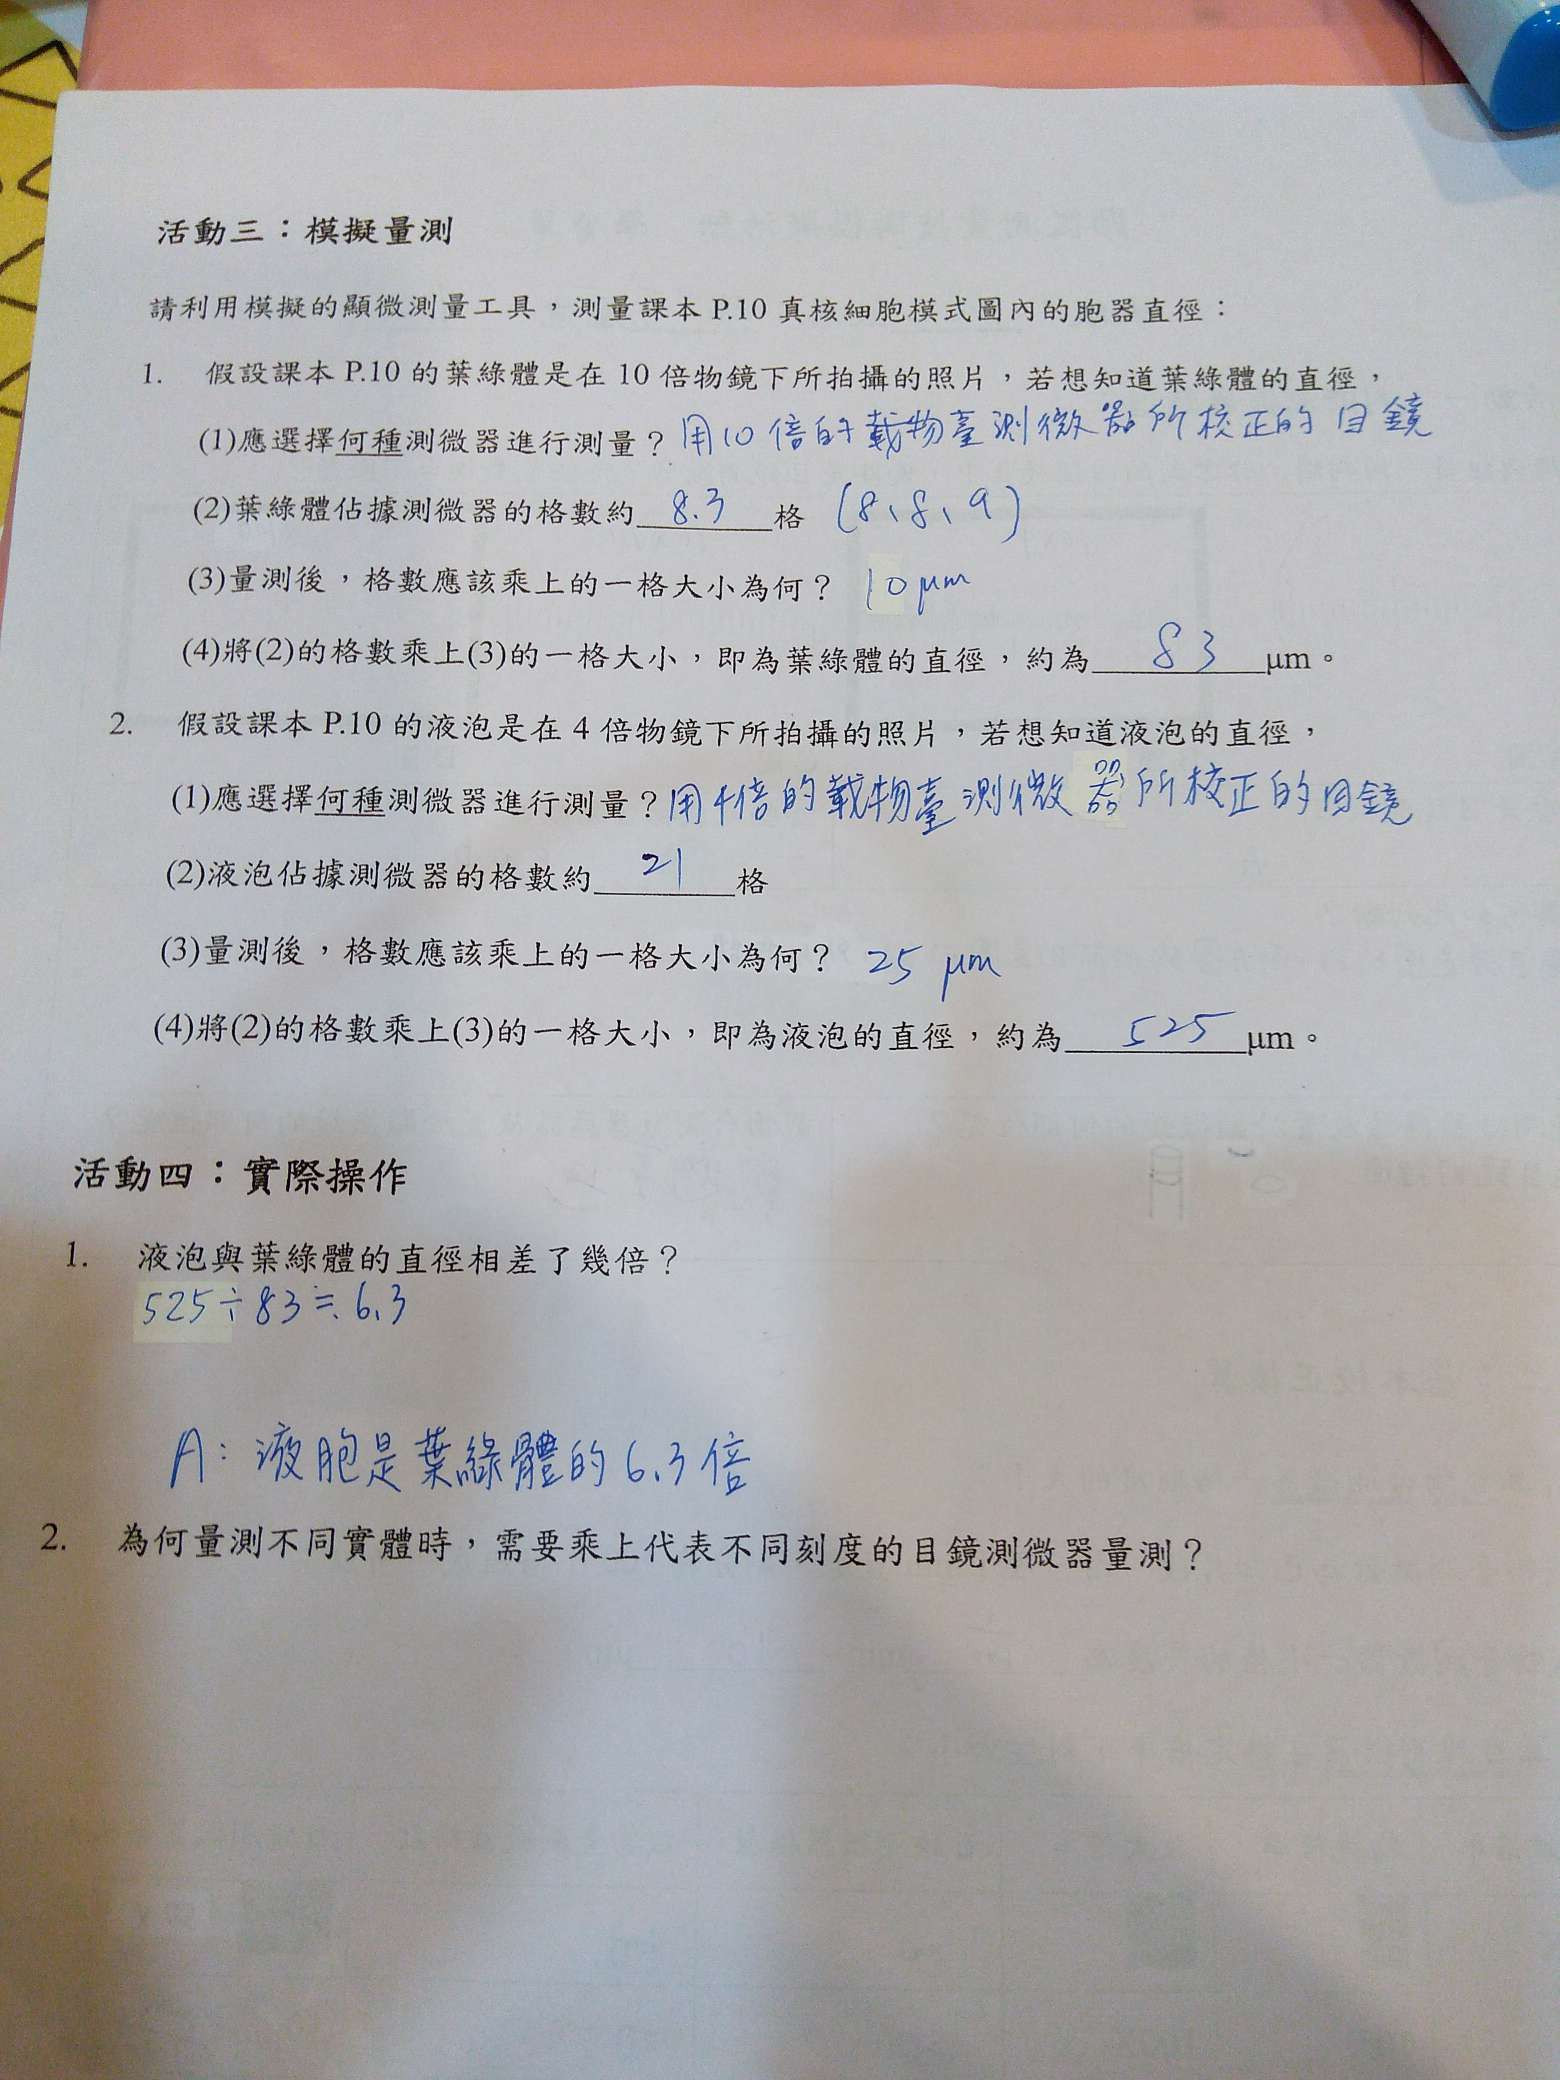 活動三：模擬量測
請利用模擬的顯微測量工具，測量課本 P.10 真核細胞模式圖內的胞器直徑：
1. 假設課本 P.10 的葉綠體是在 10 倍物鏡下所拍攝的照片，若想知道葉綠體的直徑，
(1)應選擇何種測微器進行測量？用10倍的載物臺測微器所校正的目鏡
(2)葉綠體佔據測微器的格數約 8.3 格 (8、8、9)
(3)量測後，格數應該乘上的一格大小為何？ 10 μm
(4)將(2)的格數乘上(3)的一格大小，即為葉綠體的直徑，約為 83 μm。
2. 假設課本 P.10 的液泡是在 4 倍物鏡下所拍攝的照片，若想知道液泡的直徑，
(1)應選擇何種測微器進行測量？用4倍的載物臺測微器所校正的目鏡
(2)液泡佔據測微器的格數約 21 格
(3)量測後，格數應該乘上的一格大小為何？ 25 μm
(4)將(2)的格數乘上(3)的一格大小，即為液泡的直徑，約為 525 μm。
活動四：實際操作
1. 液泡與葉綠體的直徑相差了幾倍？
525÷83≒6.3
A：液胞是葉綠體的6.3倍
2. 為何量測不同實體時，需要乘上代表不同刻度的目鏡測微器量測？